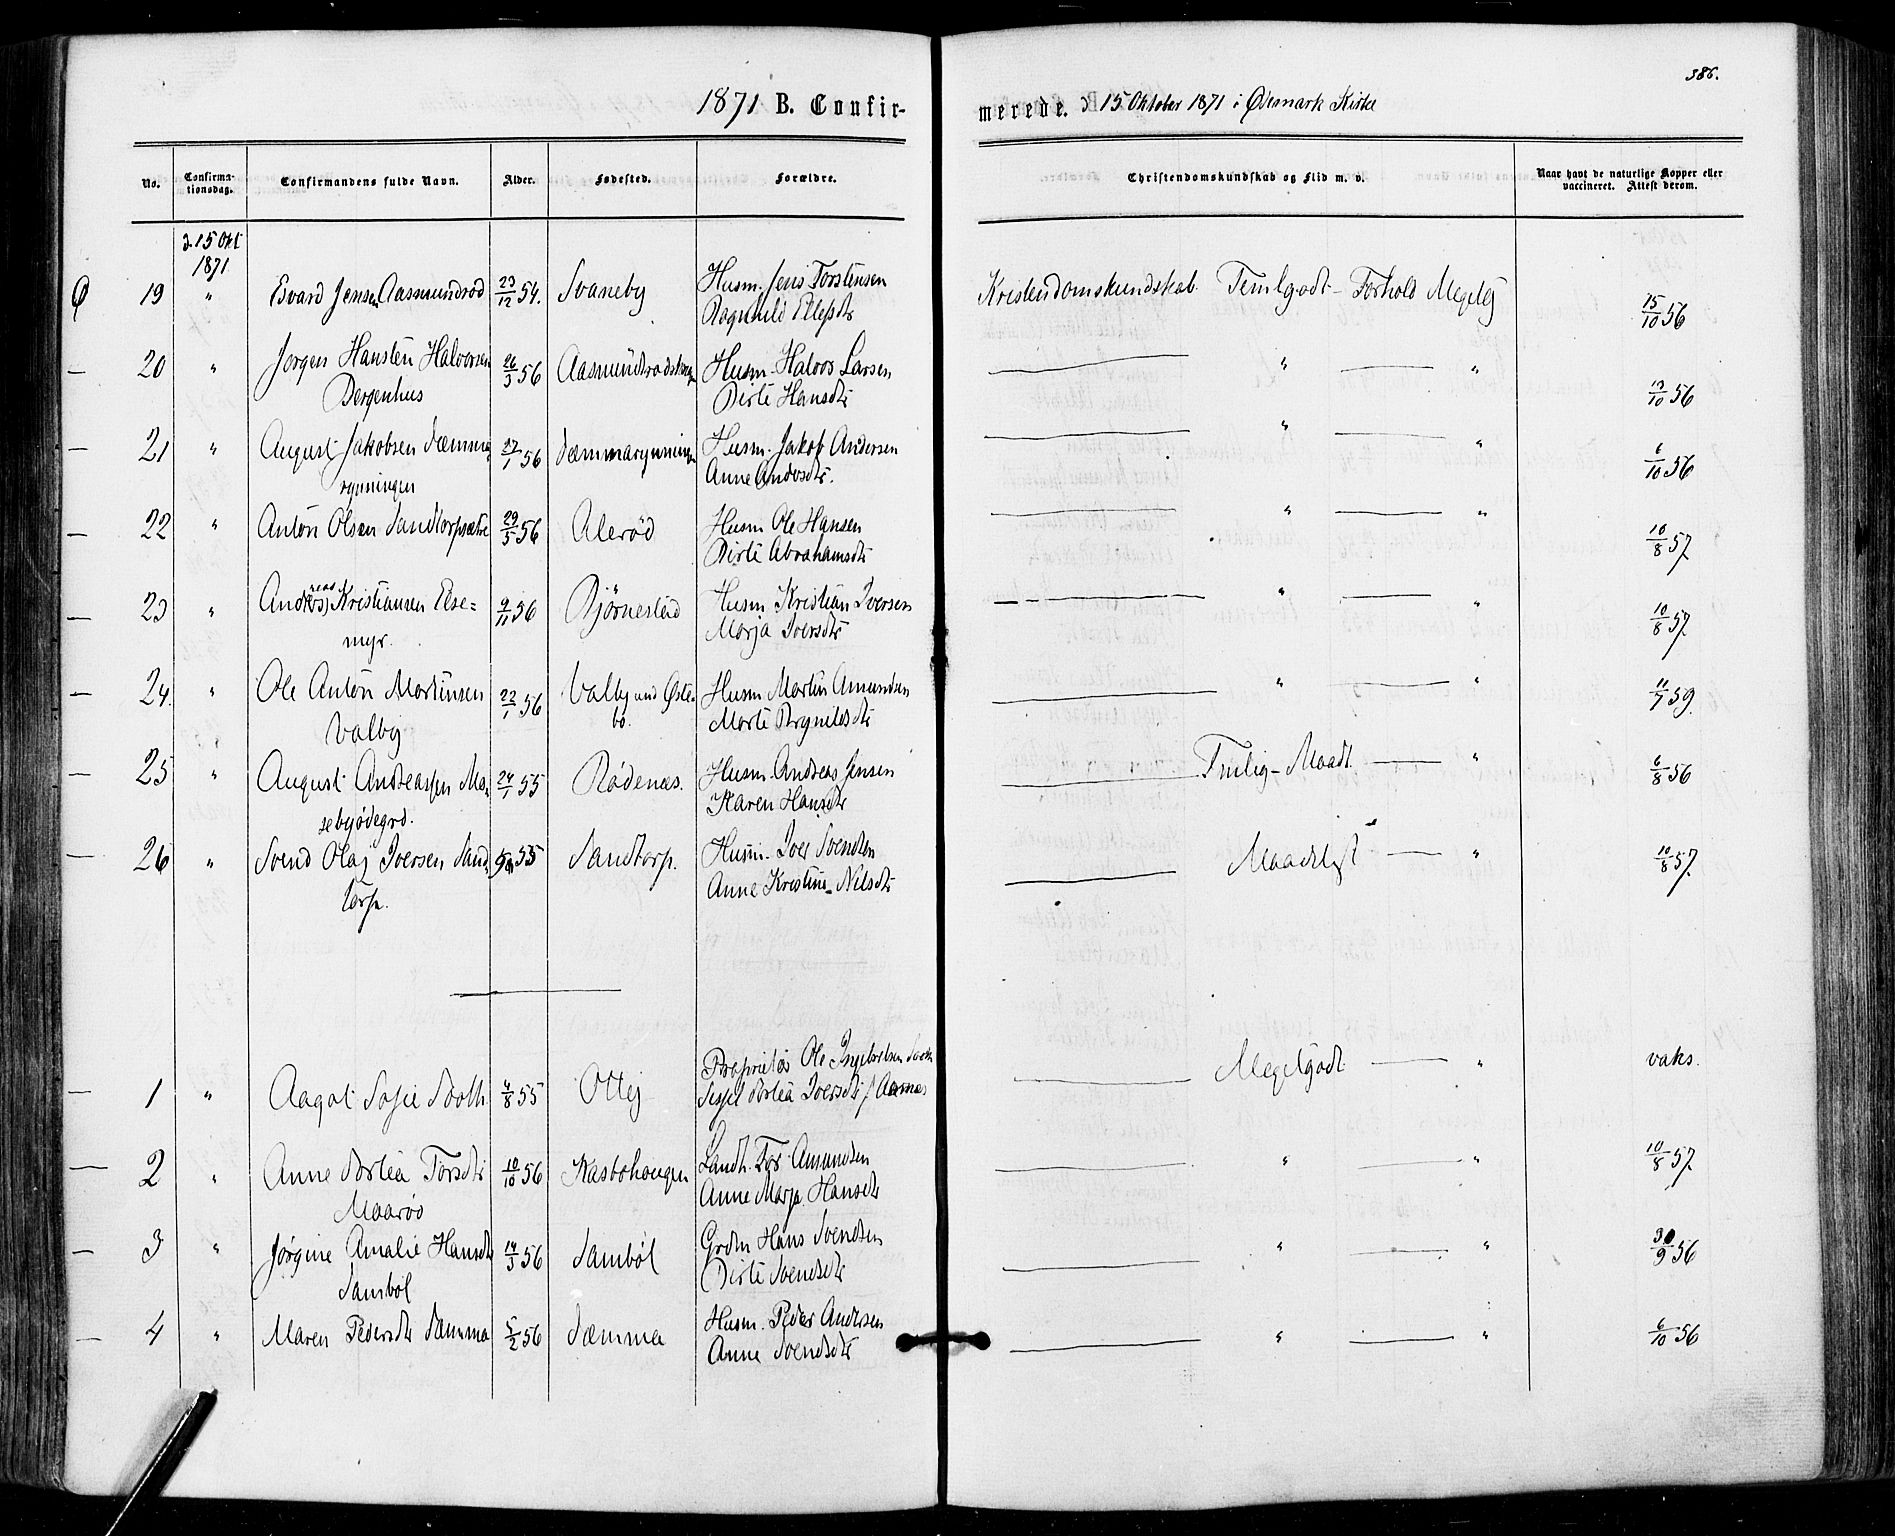 386.
1871 B. Confir-
merede. d 15 Oktober 1871 i Ødemark Kirke
No.
Confirma-
tionsdag.
Confirmandens fulde Navn.
Alder.
Fødested.
Forældre.
Christendomskundskab og Flid m. v.
Naar havt de naturlige Kopper eller
vaccineret. Attest derom.
d. 15 Okt
1871
19 " Edvard Jensen Aasmundrød 23/12 54. Svaneby Husm. Jens Torstensen
Ragnhild Ellefsdtr
Kristendomskundskab Temlgodt - Forhold Megetg 15/10 56
20 " Jørgen Hansten Halvorsen 26/3 56 Husm. Halvor Larsen
Bergenhus Dirte Hansdtr
" " 13/10 56
21 " August Jakobsen Dæmma 27/1 56 Dæmmarynningen Husm. Jakob Andersen
rynningen Anne Andersdtr.
" " 6/10 56
22 " Anton Olsen Sandtorpsætre 29/5 56 Alerød Husm Ole Hansen
Dirte Abrahamsdtr
" " 10/8 57.
23 " Andreas Kristiansen Else= 9/11 56 Bjørnestad Husm Kristian Iversen
myr. Marja Iversdtr
" " 10/8 57.
24. " Ole Anton Martinsen 22/1 56 Valby und Øste- Husm Martin Amundsen
Valby bo. Marte Brynildsdtr
" " 11/7 59.
25 " August Andreassen Mo- 24/1 55 Rødenæs. Husm. Andreas Jensen
sebyødegrd. Karen Hansdtr
Temlig - Maadl " 6/8 56
26 " Svend Olaf Iversen Sand- 55 Sandtorp. Husm. Iver Svendsen
torp. Anne Kristine Nilsdtr
Maadeligt " 10/8 57.
1 " Aagot Sofie Sooth 4/8 55 Otlej Proprietær Ole Ingebretsen Sooth
Sissel Dortea Iversdtr f. Aarnæs
Megetgodt " vaks.
2 " Anne Dortea Torsdtr 10/10 56 Kasbohougen Landh. Tor Amundsen
Maarød Anne Marja Hansdtr
" " 10/8 57.
3 " Jørgine Amalie Hansdtr 14/3 56 Sambøl Grdm Hans Svendsen
Sambøl Dirte Svendsdtr
" " 30/9 56
4 " Maren Pedersdtr Dæmma 5/2 56 Dæmma Husm. Peder Andersen
Anne Svendsdtr
" " 6/10 56